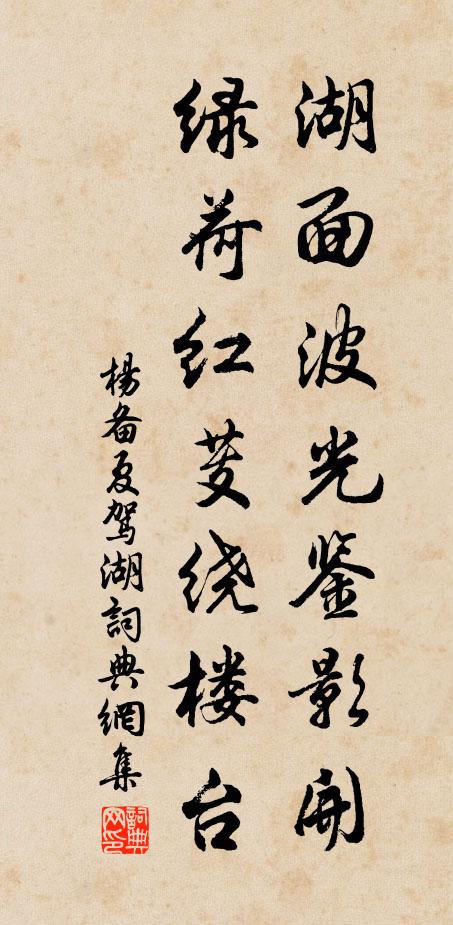 湖面波光鉴影开
绿荷红芰绕楼台
楊备夏驾湖詞典網集
詞典网印